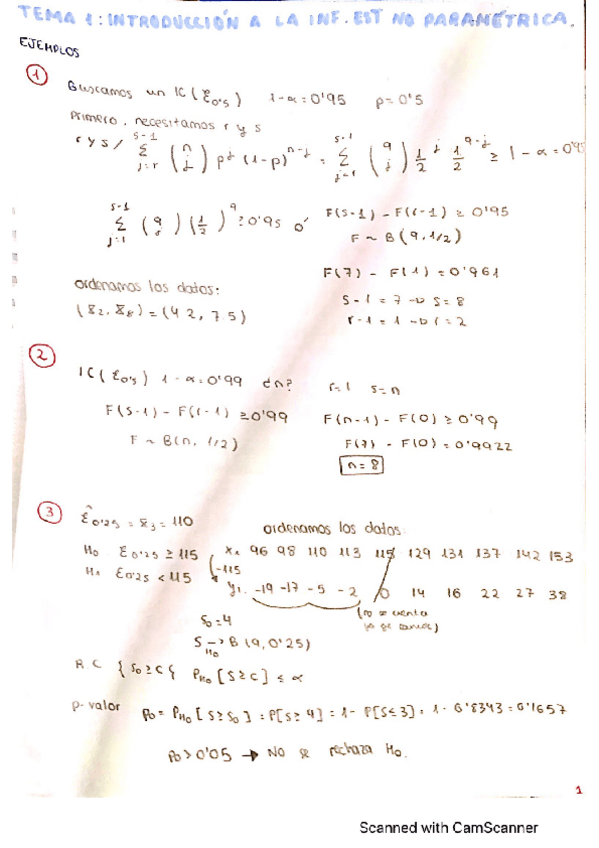 TEMA 1: INTRODUCCIÓN A LA INF. EST NO PARAMÉTRICA.
EJEMPLOS
1
Buscamos un IC(ξ0'5) 1-α=0'95 p=0'5
Primero, necesitamos r y s
r y s / Σ_{j=r}^{s-1} (n j) p^j (1-p)^{n-j} = Σ_{j=r}^{s-1} (9 j) 1/2^j 1/2^{9-j} ≥ 1-α = 0'95
Σ_{j=r}^{s-1} (9 j) (1/2)^9 ≥ 0'95 ó F(s-1) - F(r-1) ≥ 0'95
F ~ B(9, 1/2)
F(7) - F(1) = 0'961
ordenamos los datos:
s-1 = 7 → s = 8
(X2, X8) = (42, 75)
r-1 = 1 → r = 2
2
IC(ξ0'5) 1-α=0'99 ¿n? r=1 s=n
F(s-1) - F(r-1) ≥ 0'99 F(n-1) - F(0) ≥ 0'99
F ~ B(n, 1/2) F(7) - F(0) = 0'9922
n=8
3
ξ̂0'25 = X3 = 110 ordenamos los datos:
H0 ξ0'25 ≥ 115 Xi 96 98 110 113 115 129 131 137 142 153
H1 ξ0'25 < 115 -115
Yi -19 -17 -5 -2 0 14 16 22 27 38
(no se cuenta
S0 = 4
S →H0 B(9, 0'25)
RC { S0 ≥ C { PH0 [S ≥ C] ≤ α
p-valor p0 = PH0 [S ≥ S0] = P[S ≥ 4] = 1 - P[S ≤ 3] = 1 - 0'8343 = 0'1657
p0 > 0'05 → No se rechaza H0.
1
Scanned with CamScanner